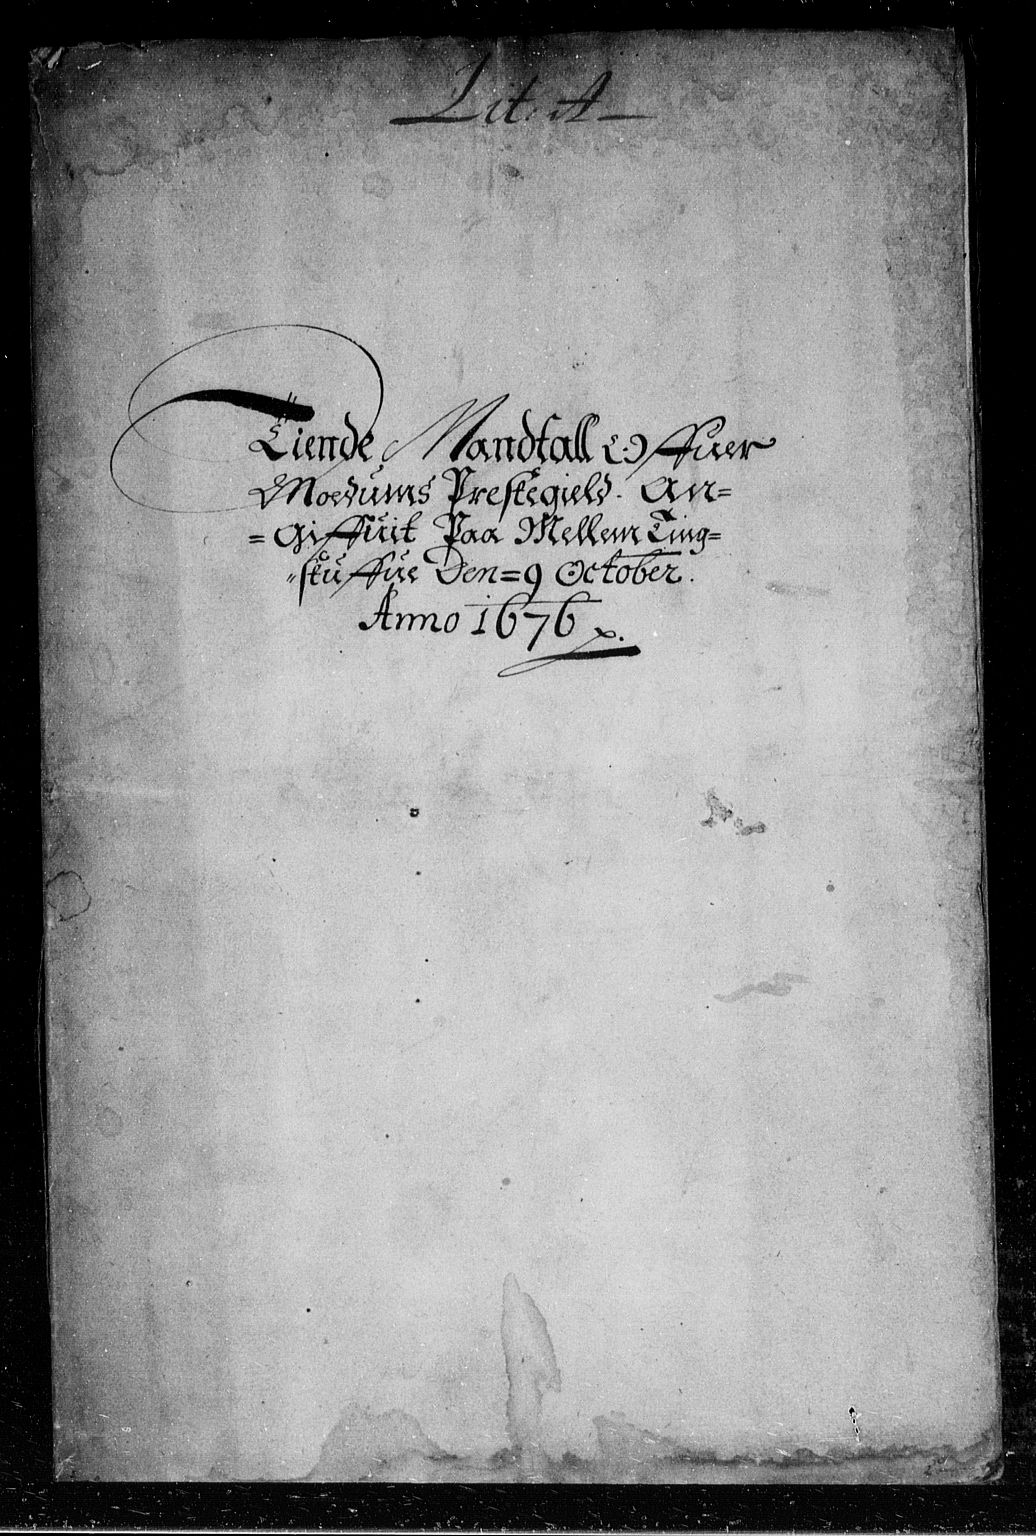 Lit: A
Tiende Mandtall Offuer
Modums Prestegield. An=
=Giffuit Paa Mellem Ting=
"stuffue Den=9 October.
Anno 1676